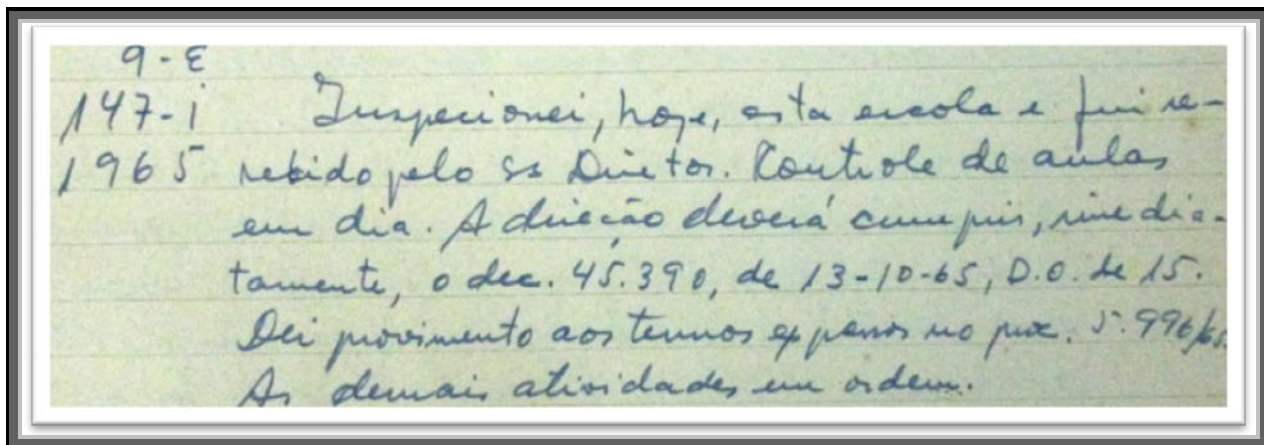 9-E
147-i Inspecionei, hoje, esta escola e fui re-
1965 cebido pelo sr Diretor. Controle de aulas
em dia. A direção deverá cumprir, imedia-
tamente, o dec. 45.390, de 13-10-65, D.O. de 15.
Dei provimento aos termos expressos no proc. 5.996/65.
As demais atividades em ordem.